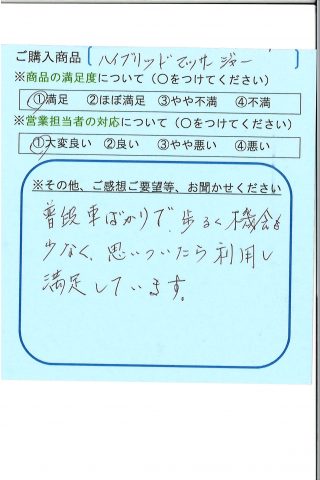 ご購入商品 ハイブリッドマッサージャー
※商品の満足度について（○をつけてください）
①満足 ②ほぼ満足 ③やや不満 ④不満
※営業担当者の対応について（○をつけてください）
①大変良い ②良い ③やや悪い ④悪い
※その他、ご感想ご要望等、お聞かせください
普段車ばかりで、歩るく機会も
少なく、思いついたら利用し
満足しています。